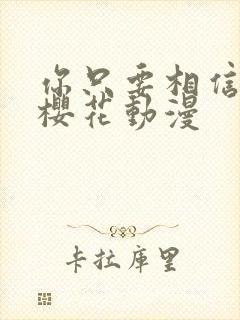 你只要相信
櫻花動漫
卡拉庫里